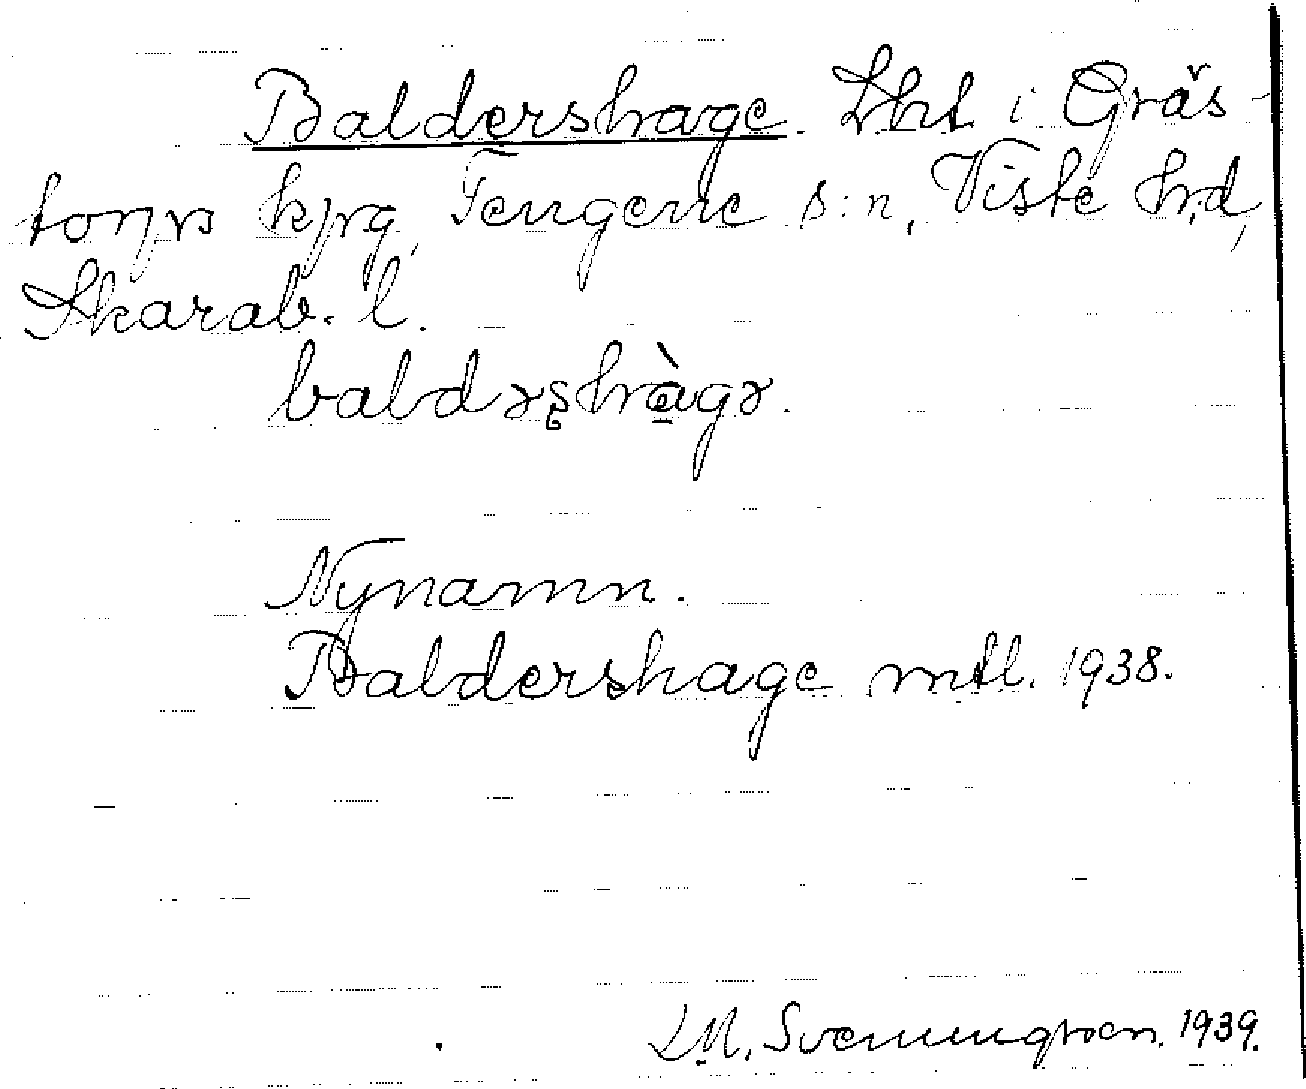 Baldershage. Lht i Gräs-
torps kpg, Tengene s:n, Viste hd,
Skarab. l.
baldəʂhàgə.
Nynamn.
Baldershage mtl. 1938.
Svenungsson. 1939.